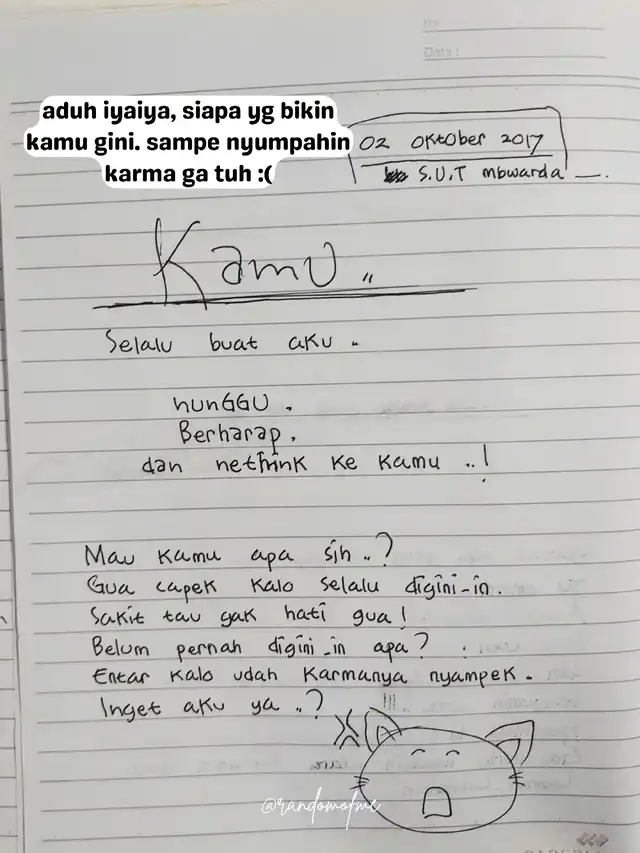 No
Date :
aduh iyaiya, siapa yg bikin
kamu gini. sampe nyumpahin
karma ga tuh :(
02 Oktober 2017
S.U.T mbwarda —.
Kamu ..
Selalu buat aku .
nunGGU .
Berharap .
dan nethink ke kamu ..!
Mau kamu apa sih ..?
Gua capek kalo selalu digini-in.
Sakit tau gak hati gua!
Belum pernah digini-in apa?
Entar kalo udah karmanya nyampek.
Inget aku ya ..?
!!!
@randomofme